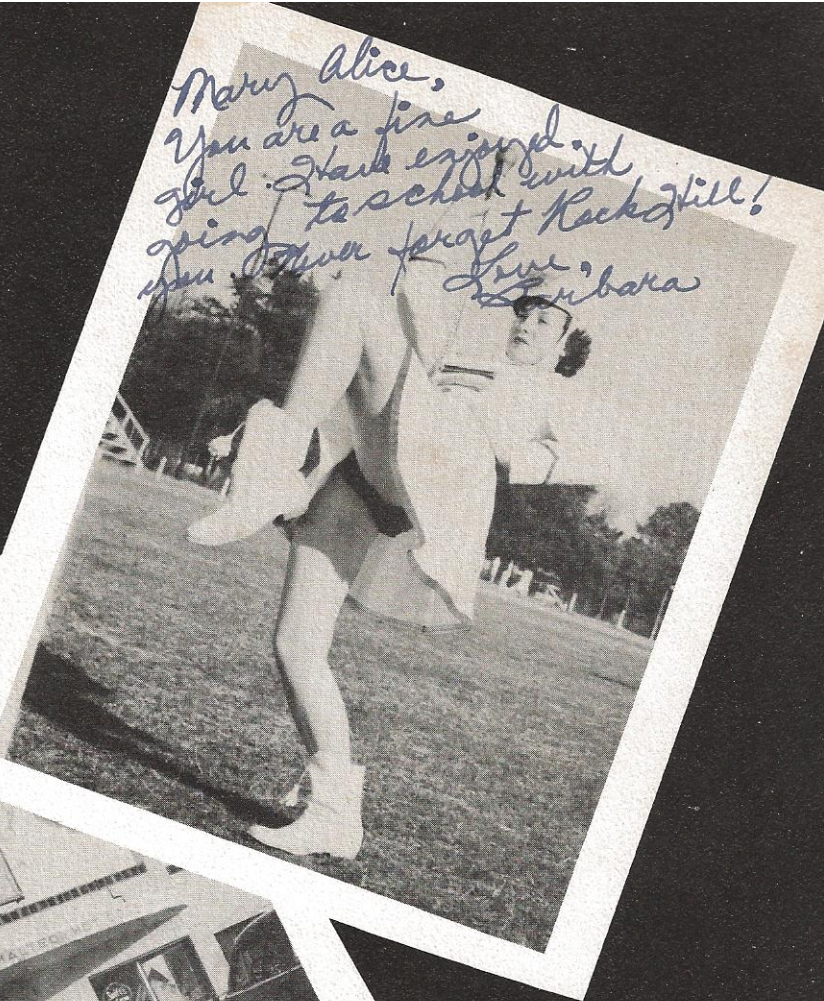 Mary Alice,
You are a fine
girl. Have enjoyed
going to school with
you. Never forget Rock Hill!
Love,
Barbara
MALTED M